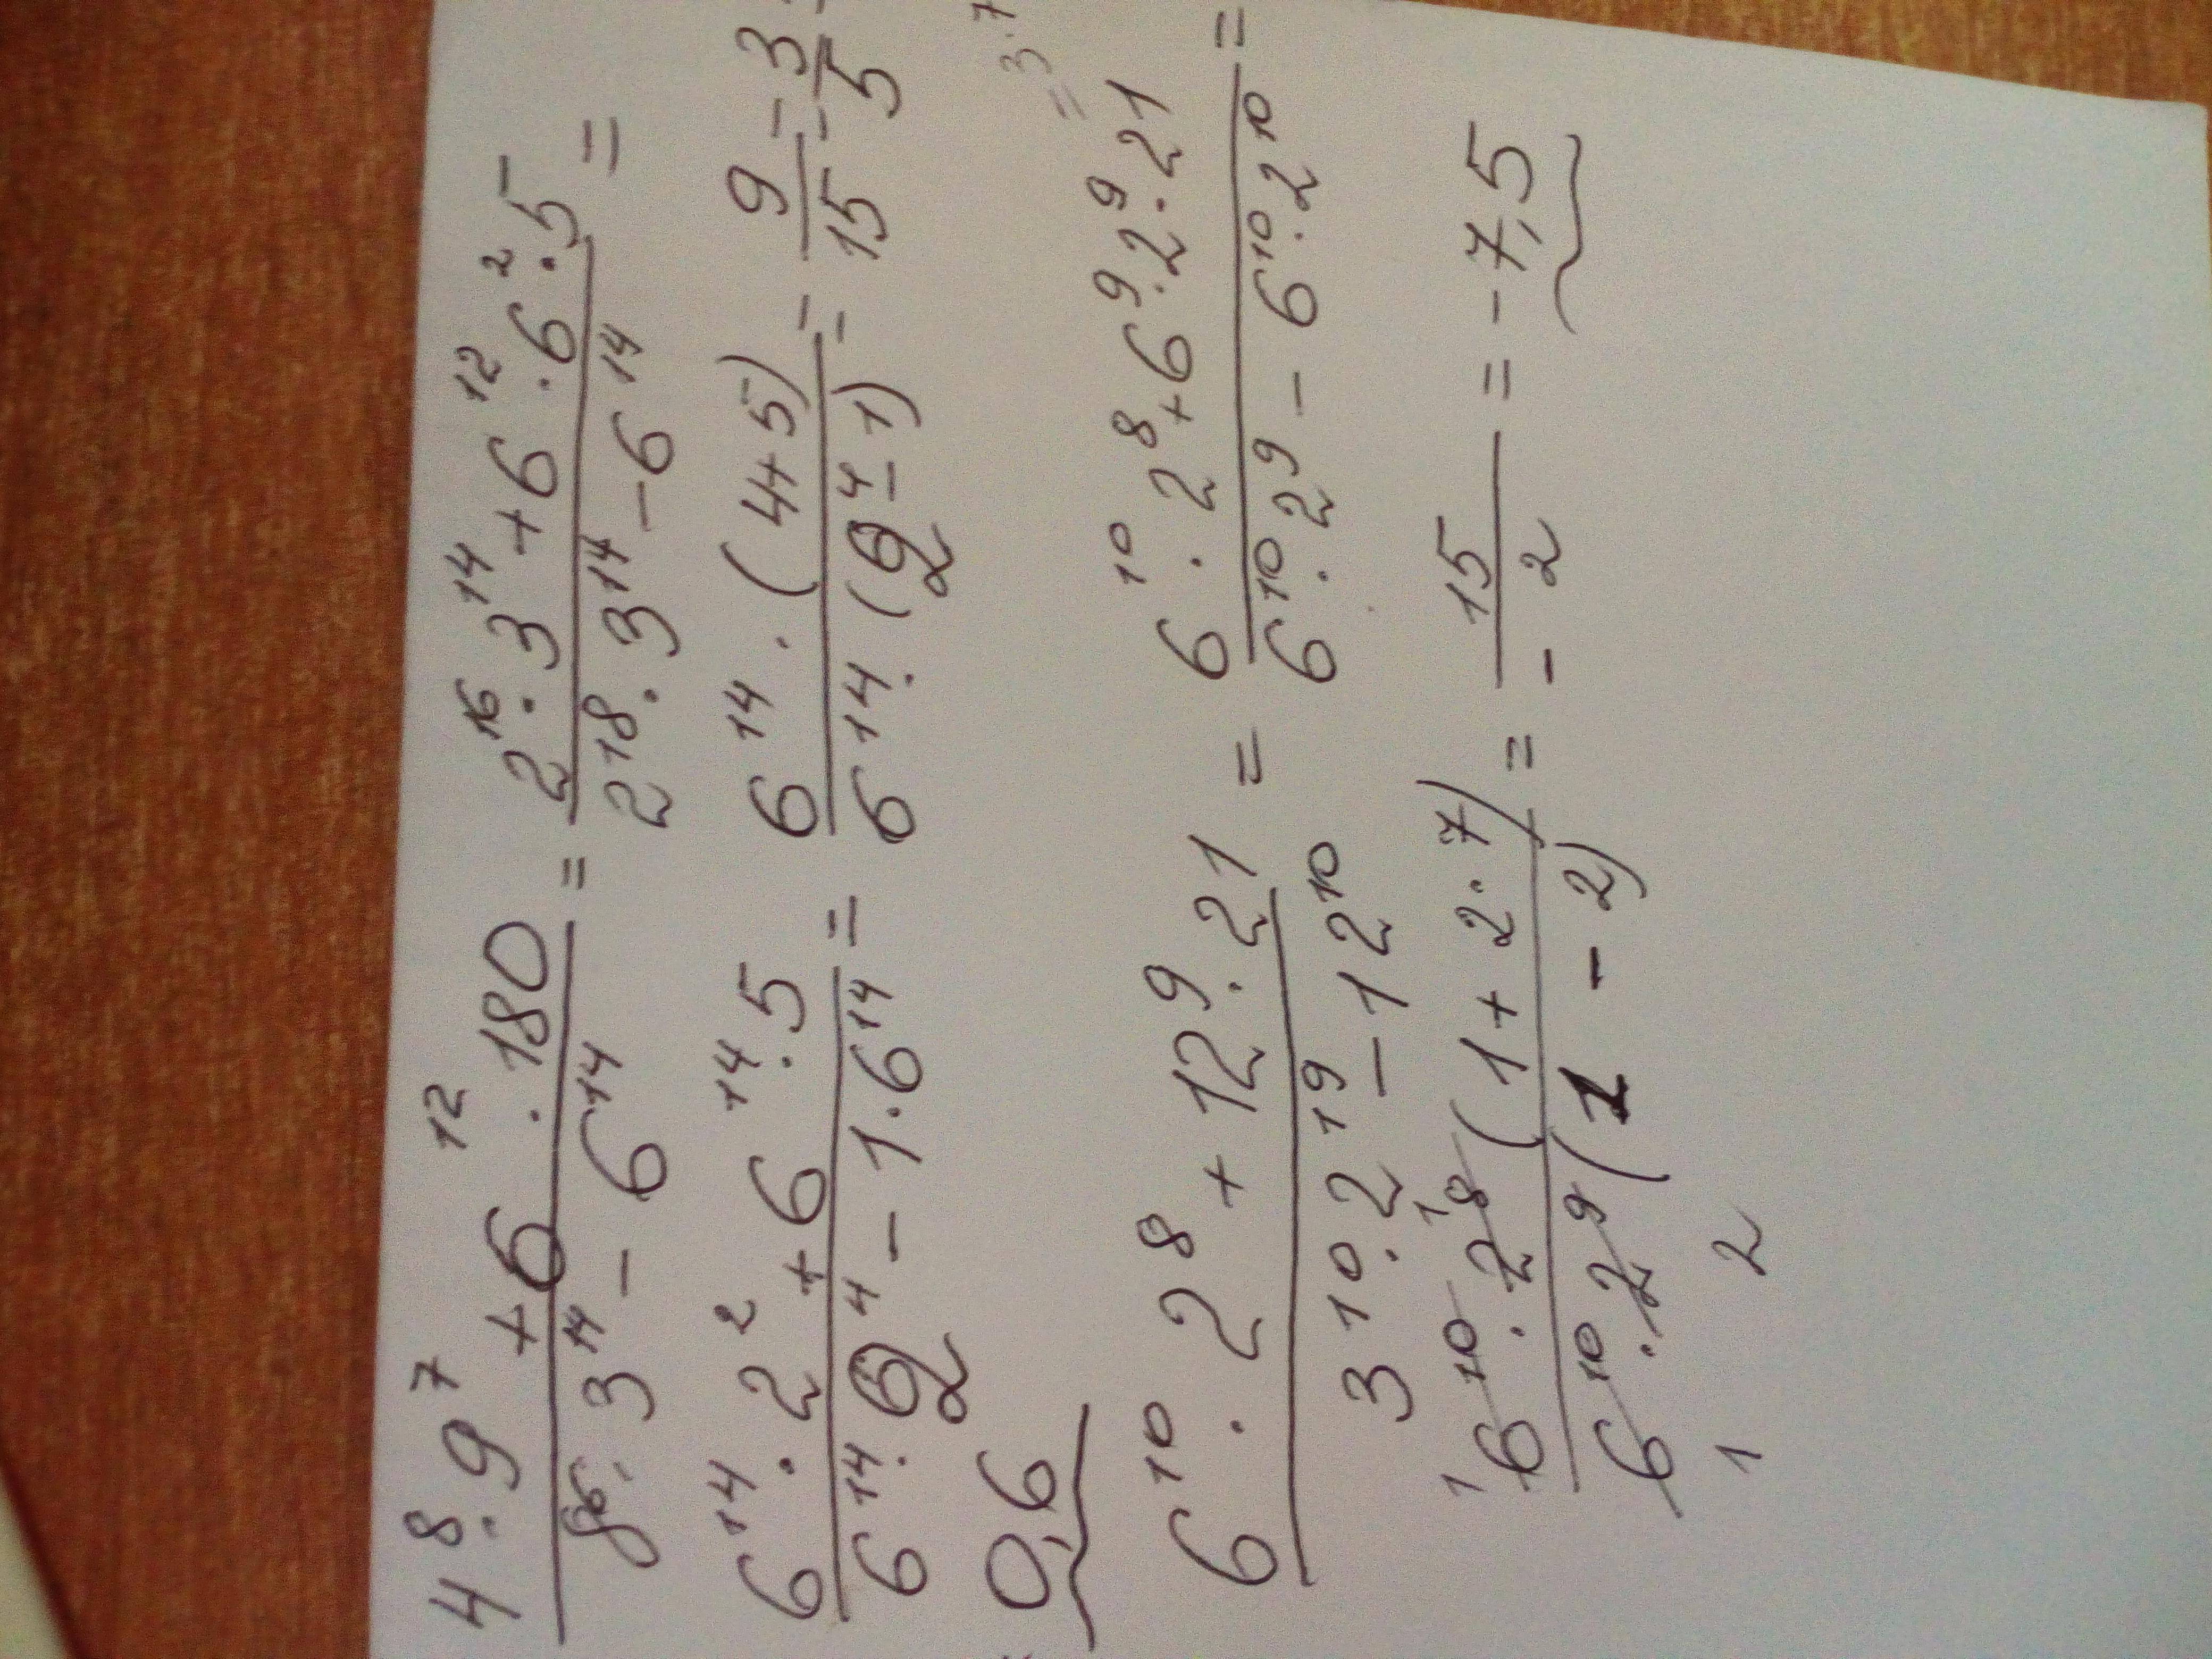 4⁸·9⁷+6¹²·180 / 8⁶·3¹⁴-6¹⁴ = 2¹⁶·3¹⁴+6¹²·6²·5 / 2¹⁸·3¹⁴-6¹⁴ =
6¹⁴·2²+6¹⁴·5 / 6¹⁴·2⁴-1·6¹⁴ = 6¹⁴·(4+5) / 6¹⁴·(2⁴-1) = 9/15 = 3/5
0,6
= 3·7
6¹⁰·2⁸+12⁹·21 / 3¹⁰·2¹⁹-12¹⁰ = 6¹⁰·2⁸+6⁹·2⁹·21 / 6¹⁰·2⁹-6¹⁰·2¹⁰ =
1 1
6¹⁰·2⁸(1+2·7) / 6¹⁰·2⁹(1-2) = 15 / -2 = -7,5
1 2